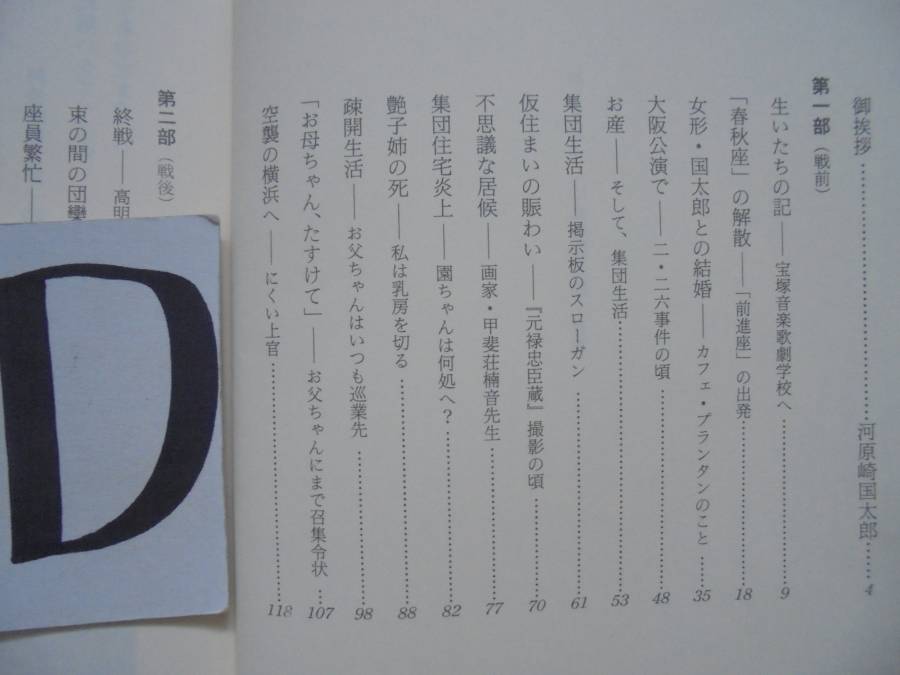 御挨拶……………………………河原崎国太郎……4
第一部（戦前）
生いたちの記――宝塚音楽歌劇学校へ……9
「春秋座」の解散――「前進座」の出発……18
女形・国太郎との結婚――カフェ・プランタンのこと……35
大阪公演で――二・二六事件の頃……48
お産――そして、集団生活……53
集団生活――掲示板のスローガン……61
仮住まいの賑わい――『元禄忠臣蔵』撮影の頃……70
不思議な居候――画家・甲斐荘楠音先生……77
集団住宅炎上――園ちゃんは何処へ？……82
艶子姉の死――私は乳房を切る……88
疎開生活――お父ちゃんはいつも巡業先……98
「お母ちゃん、たすけて」――お父ちゃんにまで召集令状……107
空襲の横浜へ――にくい上官……118
第二部（戦後）
終戦――高明
束の間の団欒
座員繁忙――
D